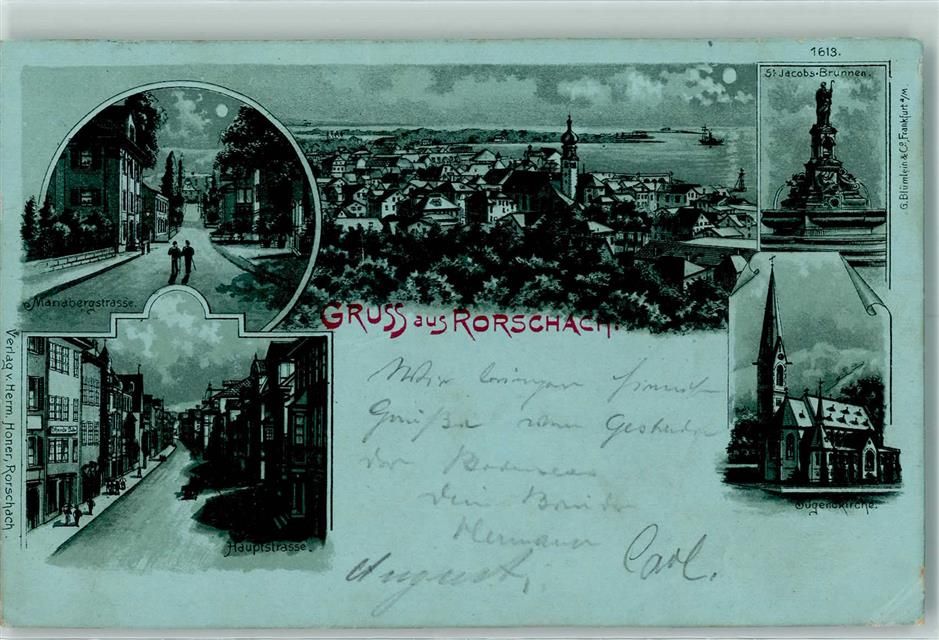 1613.
St Jacobs-Brunnen.
G. Blümlein & Co, Frankfurt a/M.
Mariabergstrasse.
GRUSS aus RORSCHACH.
Verlag v. Herm. Honer, Rorschach.
Wir bringen hiermit
Grüße vom Gestade
des Bodensees
Dein Bruder
Hermann
August, Carl.
Hauptstrasse.
Jugendkirche.